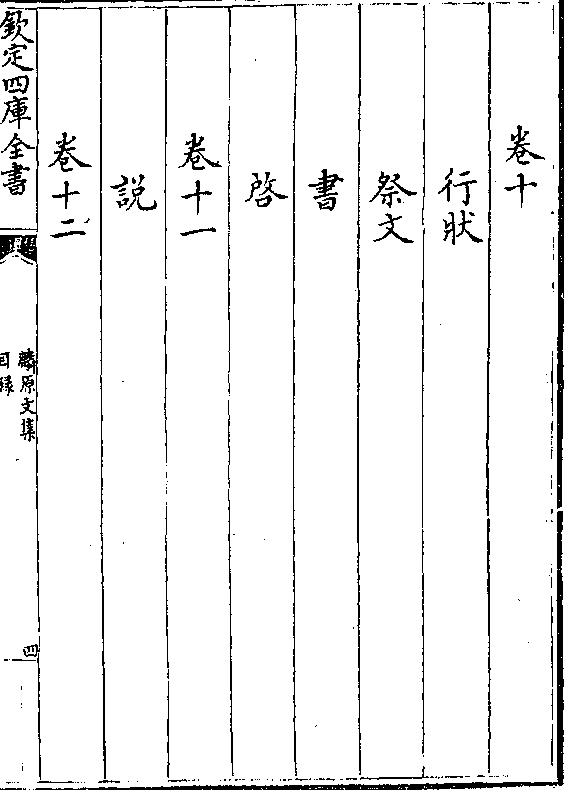 卷十
行狀
祭文
書
啓
卷十一
説
卷十二
欽定四庫全書
麟原文集
目録
四